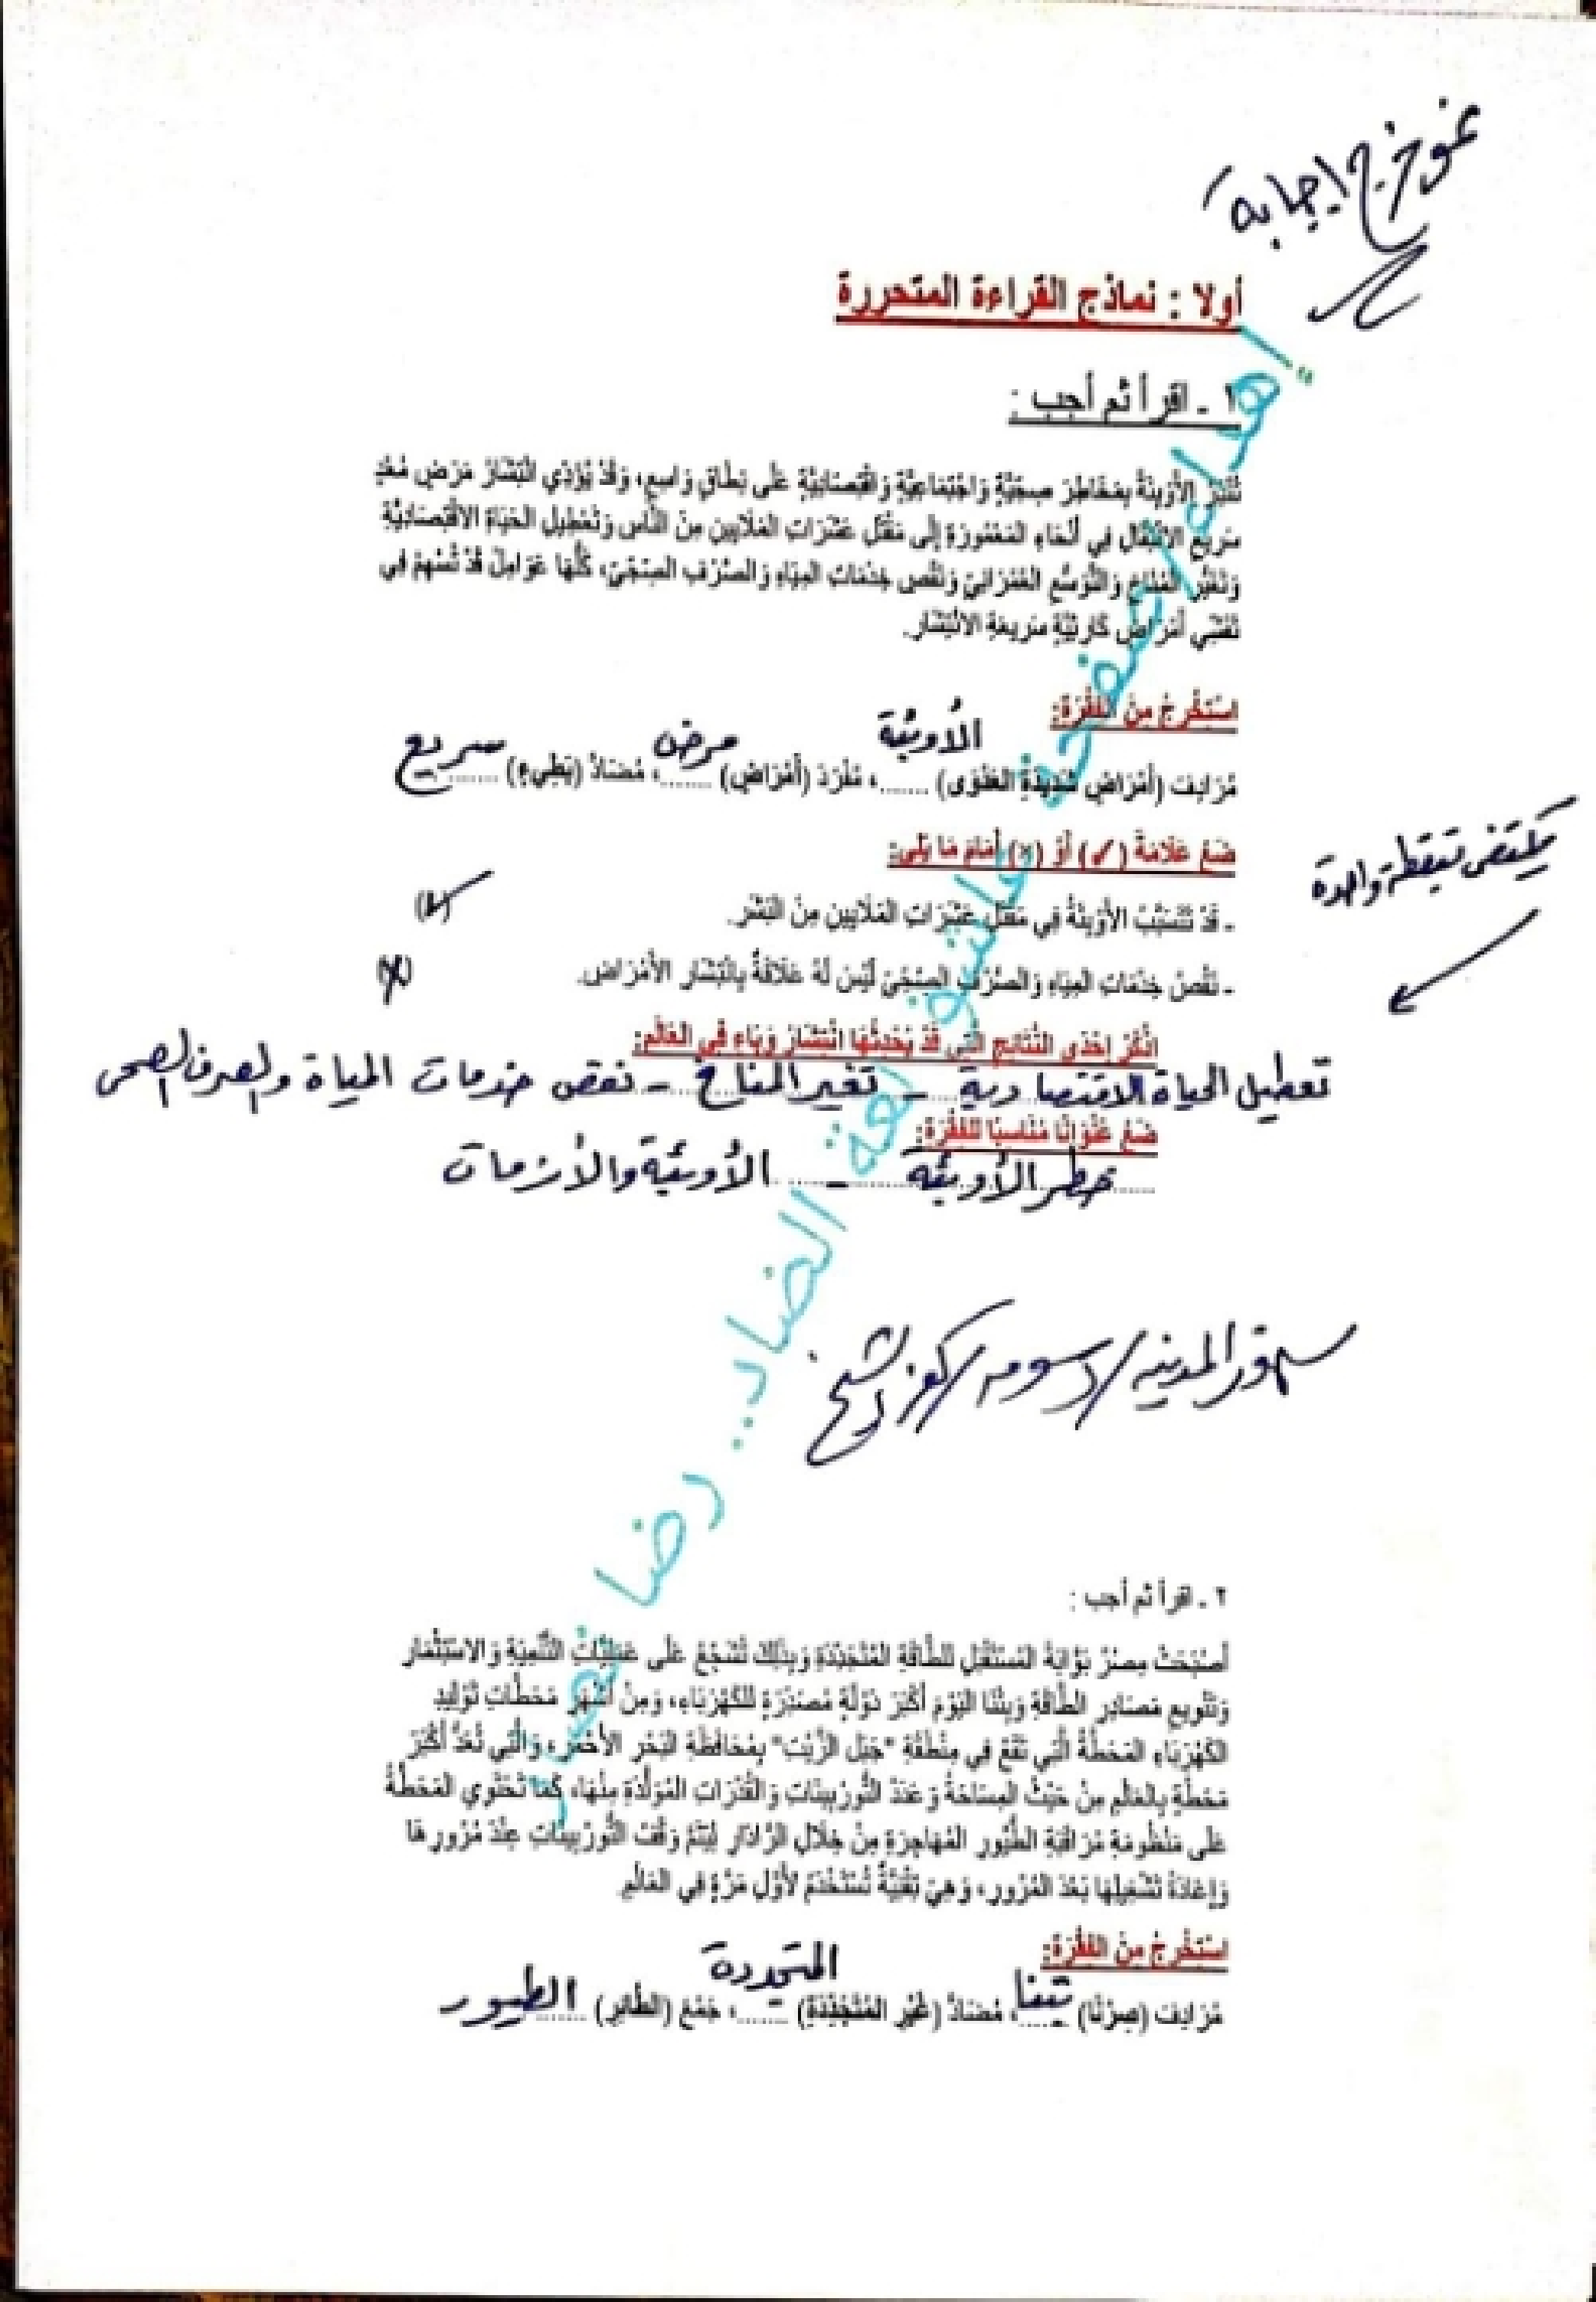 نموذج إجابة
أولا : نماذج القراءة المتحررة
١ ـ اقرأ ثم أجب :
تُنْذِرُ الأَوْبِئَةُ بِمَخَاطِرَ صِحِّيَّةٍ وَاجْتِمَاعِيَّةٍ وَاقْتِصَادِيَّةٍ عَلَى نِطَاقٍ وَاسِعٍ، وَقَدْ يُؤَدِّي انْتِشَارُ مَرَضٍ مُعْدٍ
سَرِيعِ الانْتِقَالِ فِي أَنْحَاءِ المَعْمُورَةِ إِلَى مَقْتَلِ عَشَرَاتِ المَلَايِينِ مِنَ النَّاسِ وَتَعْطِيلِ الحَيَاةِ الاقْتِصَادِيَّةِ
وَتَغَيُّرِ المُنَاخِ وَالتَّوَسُّعِ العُمْرَانِيِّ وَنَقْصِ خِدْمَاتِ المِيَاهِ وَالصَّرْفِ الصِّحِّيِّ، كُلُّهَا عَوَامِلُ قَدْ تُسْهِمُ فِي
تَفَشِّي أَمْرَاضٍ كَارِثِيَّةٍ سَرِيعَةِ الانْتِشَارِ.
اسْتَخْرِجْ مِنَ الفِقْرَةِ:
مُرَادِفَ (أَمْرَاضٍ شَدِيدَةِ العَدْوَى) الأوبئة، مُفْرَدَ (أَمْرَاضٍ) مرض، مُضَادَّ (بَطِيءٍ) سريع
ضَعْ عَلَامَةَ (✓) أَوْ (×) أَمَامَ مَا يَلِي:
- قَدْ تَتَسَبَّبُ الأَوْبِئَةُ فِي مَقْتَلِ عَشَرَاتِ المَلَايِينِ مِنَ البَشَرِ. (✓)
- نَقْصُ خِدْمَاتِ المِيَاهِ وَالصَّرْفِ الصِّحِّيِّ لَيْسَ لَهُ عَلَاقَةٌ بِانْتِشَارِ الأَمْرَاضِ. (×)
واحدة
اذْكُرْ إِحْدَى النَّتَائِجِ الَّتِي قَدْ يُحْدِثُهَا انْتِشَارُ وَبَاءٍ فِي العَالَمِ:
تعطيل الحياة الاقتصادية - تغير المناخ - نقص خدمات المياة والصرف الصحى
ضَعْ عُنْوَانًا مُنَاسِبًا لِلْفِقْرَةِ:
خطر الأوبئة - الأوبئة والأزمات
المدينة / دسوق / كفر الشيخ
٢ ـ اقرأ ثم أجب :
أَصْبَحَتْ مِصْرُ بَوَّابَةَ المُسْتَقْبَلِ لِلطَّاقَةِ المُتَجَدِّدَةِ وَبِذَلِكَ تُشَجِّعُ عَلَى عَمَلِيَّاتِ التَّنْمِيَةِ وَالاسْتِثْمَارِ
وَتَنْوِيعِ مَصَادِرِ الطَّاقَةِ وَبِتْنَا اليَوْمَ أَكْبَرَ دَوْلَةٍ مُصَدِّرَةٍ لِلْكَهْرَبَاءِ، وَمِنْ أَشْهَرِ مَحَطَّاتِ تَوْلِيدِ
الكَهْرَبَاءِ المَحَطَّةُ الَّتِي تَقَعُ فِي مِنْطَقَةِ "جَبَلِ الزَّيْتِ" بِمُحَافَظَةِ البَحْرِ الأَحْمَرِ، وَالَّتِي تُعَدُّ أَكْبَرَ
مَحَطَّةٍ بِالعَالَمِ مِنْ حَيْثُ المِسَاحَةُ وَعَدَدُ التُّورْبِينَاتِ وَالقُدْرَاتِ المُوَلَّدَةِ مِنْهَا، كَمَا تَحْتَوِي المَحَطَّةُ
عَلَى مَنْظُومَةِ مُرَاقَبَةِ الطُّيُورِ المُهَاجِرَةِ مِنْ خِلَالِ الرَّادَارِ لِيَتِمَّ وَقْفُ التُّورْبِينَاتِ عِنْدَ مُرُورِهَا
وَإِعَادَةُ تَشْغِيلِهَا بَعْدَ المُرُورِ، وَهِيَ تِقْنِيَّةٌ تُسْتَخْدَمُ لِأَوَّلِ مَرَّةٍ فِي العَالَمِ.
اسْتَخْرِجْ مِنَ الفِقْرَةِ:
مُرَادِفَ (صِرْنَا) بتنا، مُضَادَّ (غَيْرِ المُتَجَدِّدَةِ) المتجددة، جَمْعَ (الطَّائِرِ) الطيور
إهداء لصفحة عاشق لغة الضاد.. رضا نصار